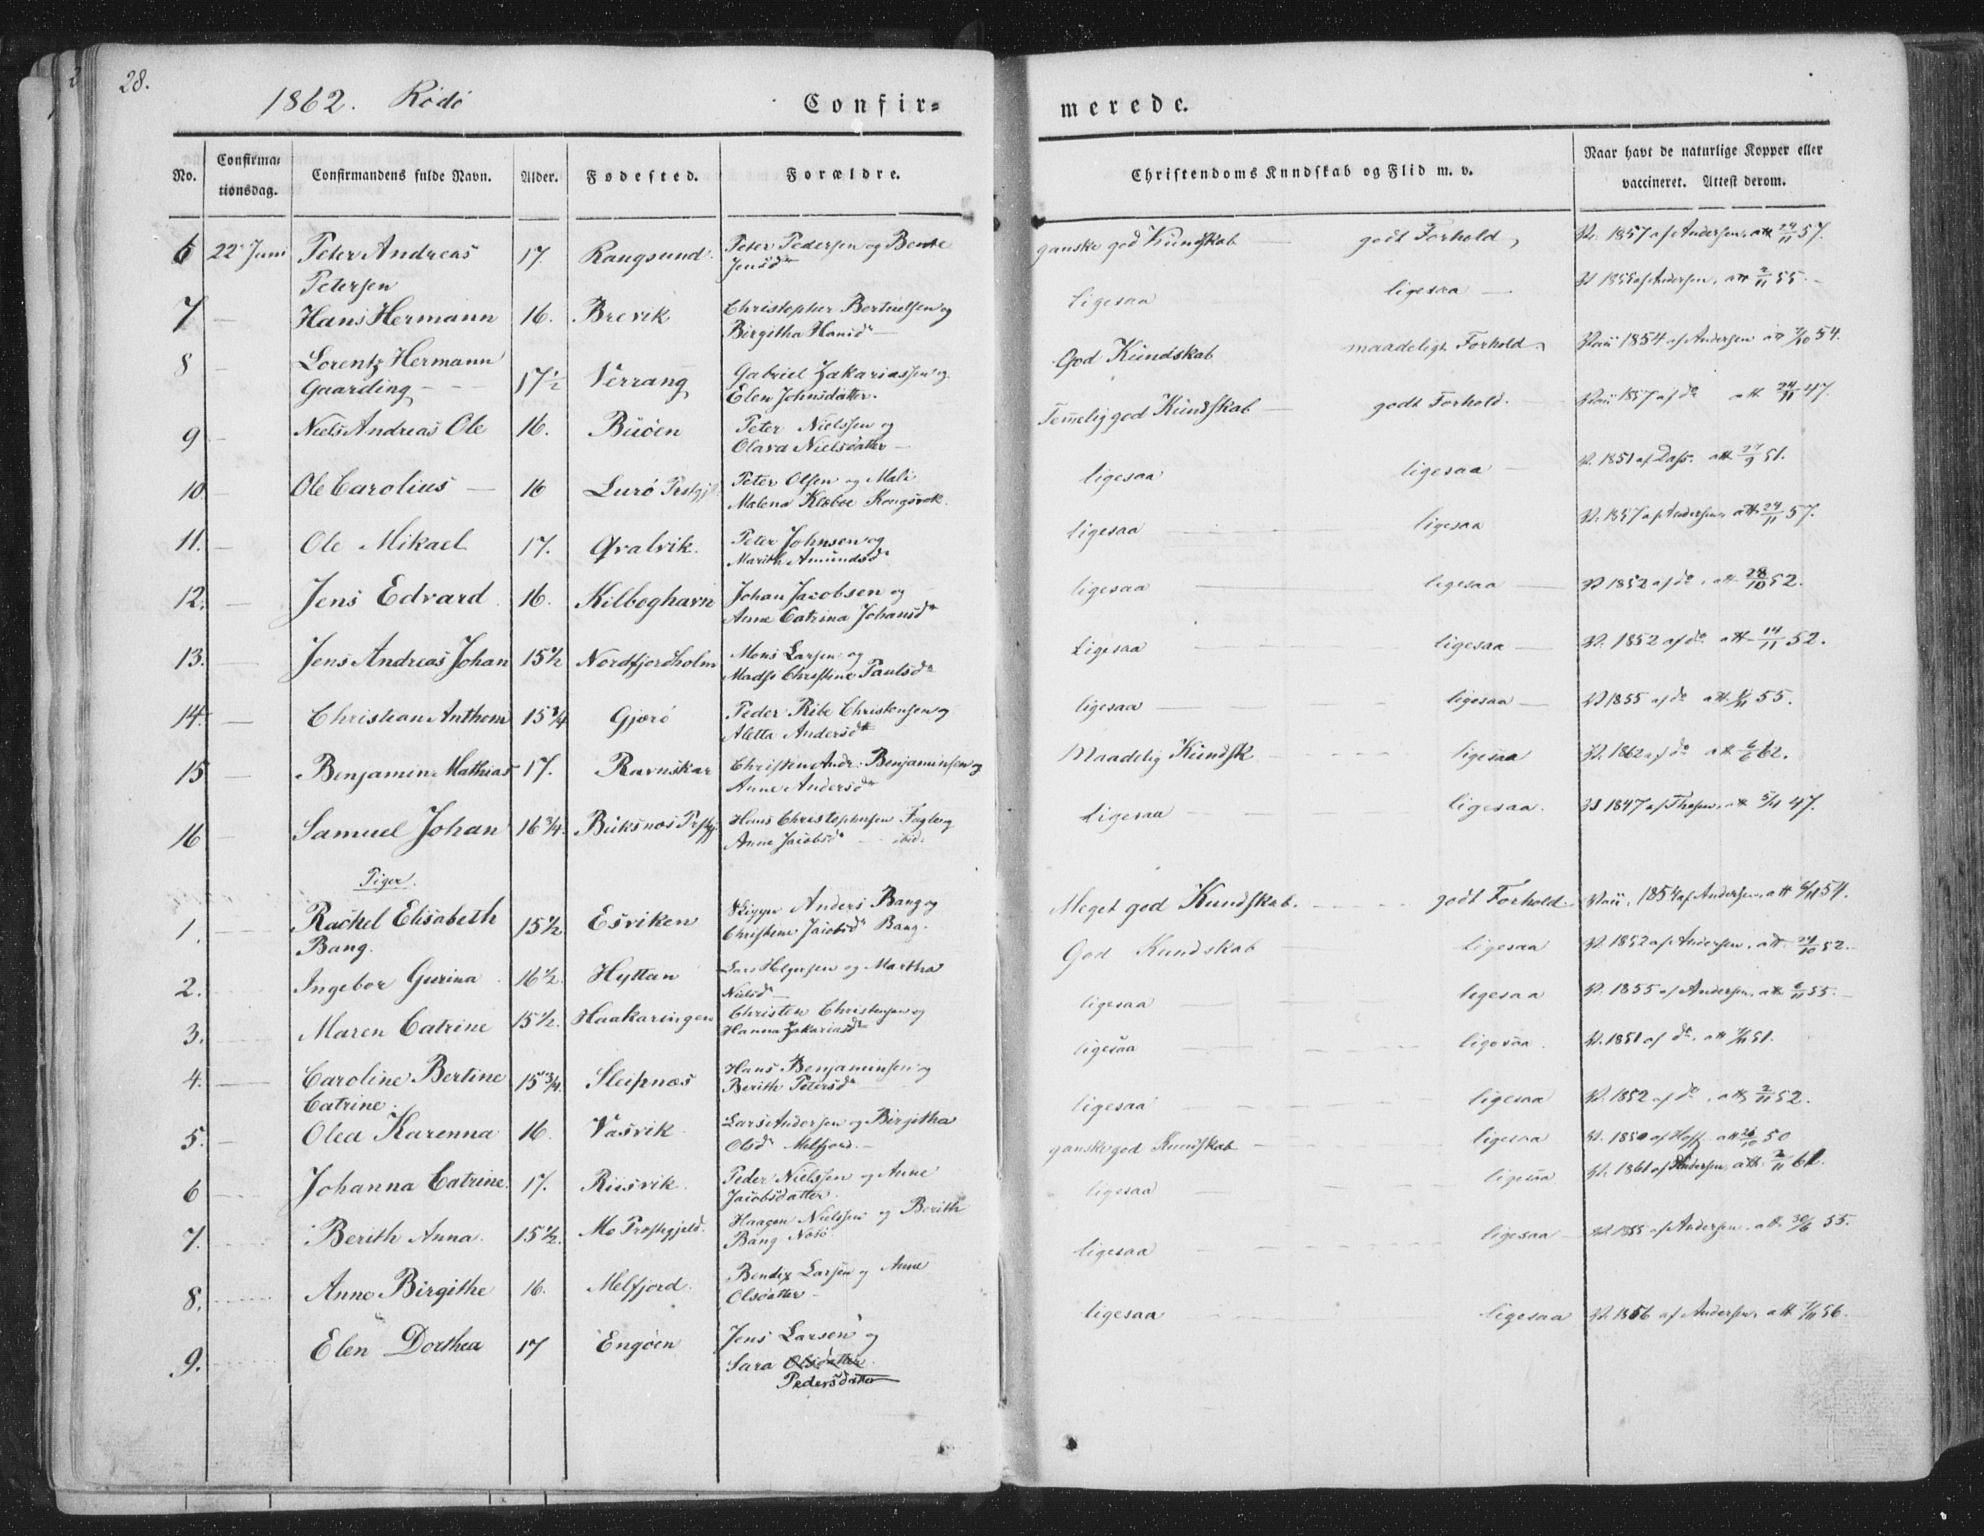 28.
1862. Rødø
Confir=
merede.
No.
Confirma=
tionsdag.
Confirmandens fulde Navn.
Alder.
Fødested.
Forældre.
Christendoms Kundskab og Flid m. v.
Naar havt de naturlige Kopper eller
vaccineret. Attest derom.
6 22 Juni Peter Andreas 17. Rangsund. Peter Pedersen og Bente ganske god Kundskab — godt Forhold, V. 1857 af Andersen, att 24/11 57.
Petersen Jensdr
7 — Hans Hermann 16. Brevik Christopher Bertuelsen og ligesaa ligesaa — V 1855 af Andersen, att 2/11 55.
Birgitha Hansdr —
8 — Lorentz Hermann 17½ Verrang Gabriel Zakariassen og God Kundskab maadeligt Forhold, Vacc 1854 af Andersen att 7/10 54.
Gaarding — Elen Johnsdatter.
9 — Niels Andreas Ole 16. Buøen Peter Nielssen og Temelig god Kundskab — godt Forhold. Vacc 1857 af do att 24/11 47.
Olava Nielsdatter —
10 — Ole Carolius — 16 Lurø Prstgj Peter Olsen og Mali ligesaa ligesaa — V. 1851 af Dass. att 27/9 51.
Malena Klæboe Kongsvik.
11. — Ole Mikael 17. Qvalvik. Peter Johnsen og ligesaa ligesaa V. 1857 af Andersen, att 24/11 57.
Marith Amundsdr
12. — Jens Edvard 16. Kilboghavn Johan Jacobsen og ligesaa ligesaa — V 1852 af do, att 28/10 52.
Anne Catrina Johansdr
13. — Jens Andreas Johan 15½ Nordfjordholm Mons Larsen og Ligesaa ligesaa — V. 1852 af do att 14/11 52.
Madss Christine Paulsdr
14. — Christian Anthon 15¾ Gjærø Peder Ribe Christensen og ligesaa — ligesaa — V 1855 af do att 6/11 55.
Aletta Andersdr
15 — Benjamin Mathias 17. Ravnskar Christen Andr. Benjaminsen og Maadelig Kundsk — ligesaa V. 1862 af do att 6/6 62.
Anne Andersdr
16 — Samuel Johan 16¾. Buksnæs Prstgj Hans Christophersen Fagley Ligesaa — ligesaa. V 1847 af Thesen, att 5/11 47.
Anne Jacobsdr — ibid.
Piger.
1. Rachel Elisabeth 15½ Esviken Skipper Anders Bang og Meget god Kundskab. godt Forhold. Vacc. 1854 af Andersen, att 6/11 54.
Bang. Christine Jacobsdr Bang.
2. Ingebor Gurina 16½. Hyttan Lars Helgesen og Martha God Kundskab — ligesaa V. 1852 af Andersen, att. 24/10 52.
Nielsdr
3. Maren Catrine 15½. Haakaringen Christen Christensen og ligesaa ligesaa V. 1855 af Andersen, att 6/11 55.
Hanna Zakariasdr
4. — Caroline Bertine 15¾. Sleipnæs Hans Benjaminsen og ligesaa ligesaa. V. 1851 af do. att 7/11 51.
Catrine. Berith Petersdr
5. — Olea Karenna 16. Vasvik Lars Andersen og Birgitha ligesaa ligesaa V. 1852 af do, att 2/11 52.
Olsdr Melfjord. —
6 Johanna Catrine. 17. Riisvik. Peder Nielssen og Anne ganske god Kundskab ligesaa V. 1850 af Hoff, att 26/10 50
Jacobsdatter.
7. Berith Anna. 15½. Mo Prstgjeld. Haagen Nielssen og Berith ligesaa ligesaa V. 1861 af Andersen, att. 2/11 61.
Bang Nosø
8. Anne Birgithe 16. Melfjord. Bendix Larsen og Anne ligesaa ligesaa V. 1855 af Andersen. att. 30/6 55.
Olsdatter —
9. Elen Dorthea 17 Engøen Jens Larsen og ligesaa ligesaa V. 1856 af Andersen, att 7/11 56.
Sara Olsdatter.
Pedersdatter